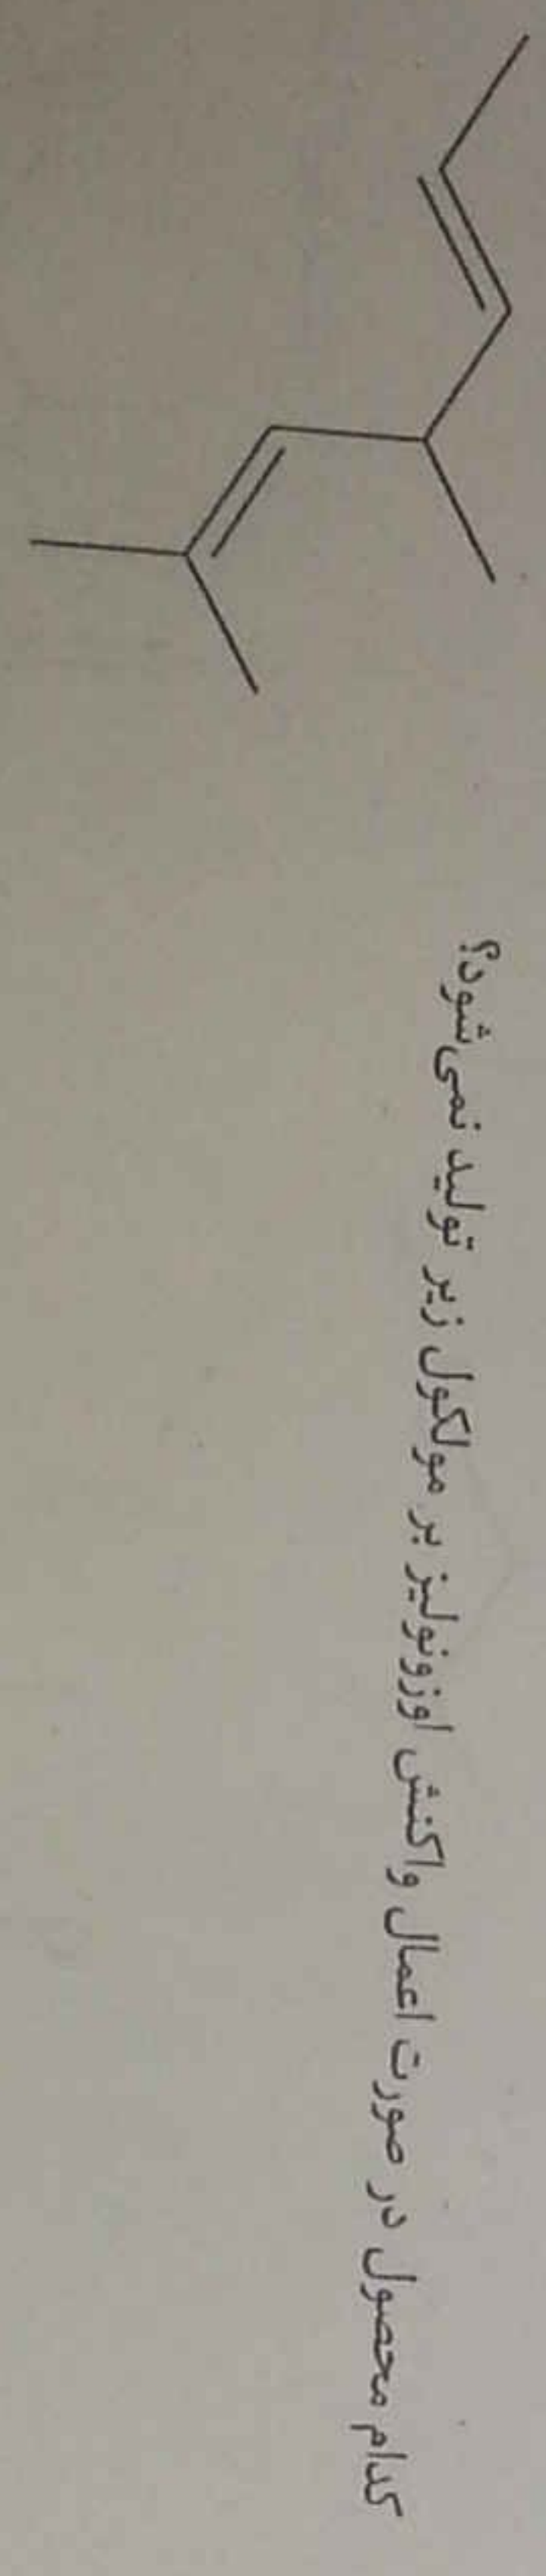 کدام محصول در صورت اعمال واکنش اوزونولیز بر مولکول زیر تولید نمی‌شود؟